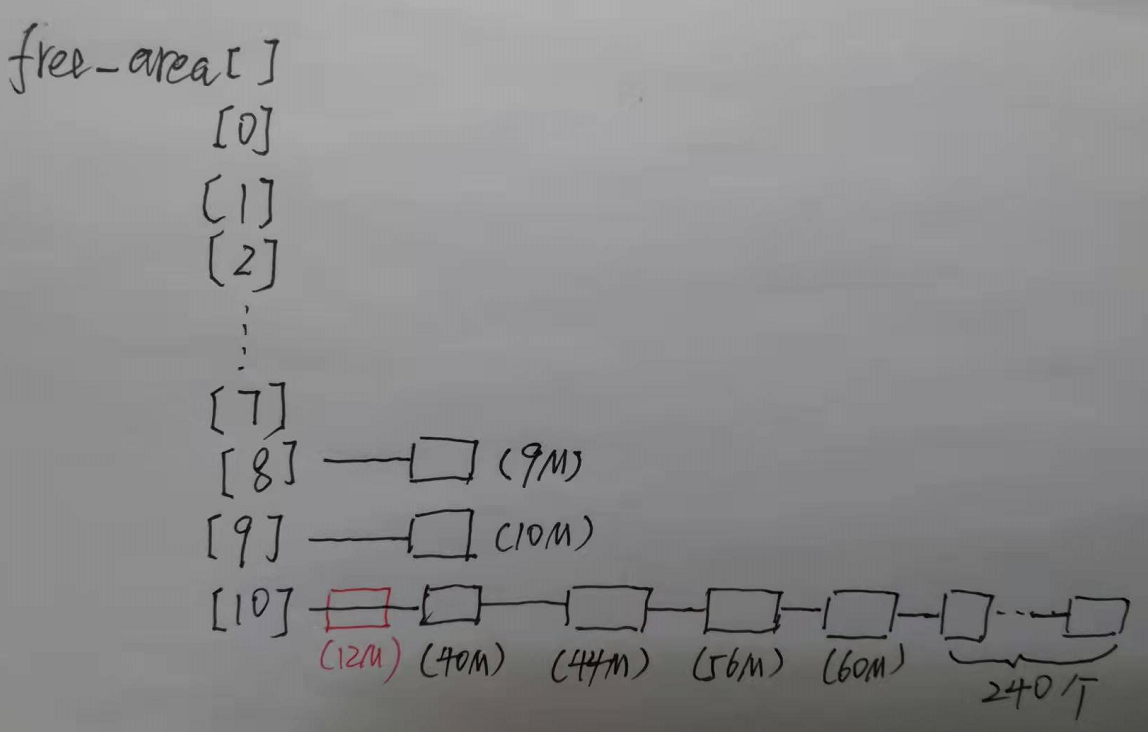 free_area[ ]
[0]
[1]
[2]
[7]
[8] (9M)
[9] (10M)
[10]
(12M) (40M) (44M) (56M) (60M)
240个